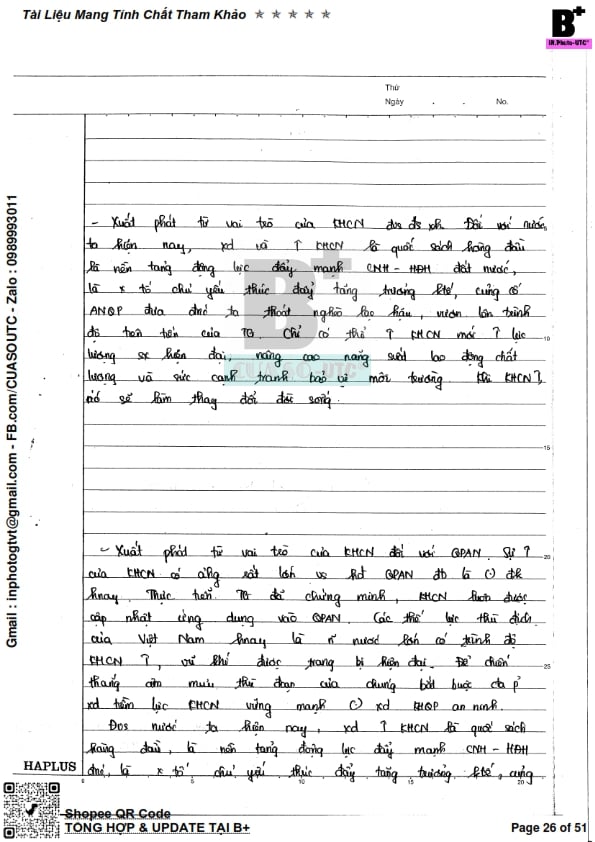 Tài Liệu Mang Tính Chất Tham Khảo ★ ★ ★ ★ ★
B+
IN.Photo-UTC
Thứ
Ngày . . No.
- Xuất phát từ vai trò của KHCN đvs đs xh. Đối với nước
ta hiện nay, xd và ↑ KHCN là quốc sách hàng đầu
là nền tảng động lực đẩy mạnh CNH - HĐH đất nước,
là x tố chủ yếu thúc đẩy tăng trương ktế, cung cố
ANQP đưa đnc ta thoát nghèo lạc hậu, vươn lên trình
độ tiên tiến của TG. Chỉ có thể ↑ KHCN mới ↑ lực
lượng sx hiện đại, nâng cao năng suất lao động chất
lượng và sức cạnh tranh bảo vệ môi trường khi KHCN ↑,
nó sẽ làm thay đổi đời sống.
B+
CUASO-UTC
- Xuất phát từ vai trò của KHCN đối với QPAN. Sự ↑
của KHCN có ảhg rất lớn vs hđ QPAN đb là (-) đk
hnay. Thực tiễn TG đã chứng minh, KHCN luôn được
cập nhật ứng dụng vào QPAN. Các thế lực thù địch
của Việt Nam hnay là n nước lớn có trình độ
KHCN ↑, vũ khí được trang bị hiện đại. Để chiến
thắng âm mưu thủ đoạn của chung bắt buộc cta p
xd tiềm lực KHCN vững mạnh (-) xd KHQP an ninh.
Đvs nước ta hiện nay, xd ↑ KHCN là quốc sách
hàng đầu, là nền tảng động lực đẩy mạnh CNH - HĐH
đnc, là x tố chủ yếu thúc đẩy tăng trương ktế, cung
5
10
15
20
25
HAPLUS
0 5 10 15 20
Gmail : inphotogtvt@gmail.com - FB.com/CUASOUTC - Zalo : 0989993011
Shopee QR Code
TỔNG HỢP & UPDATE TẠI B+
Page 26 of 51